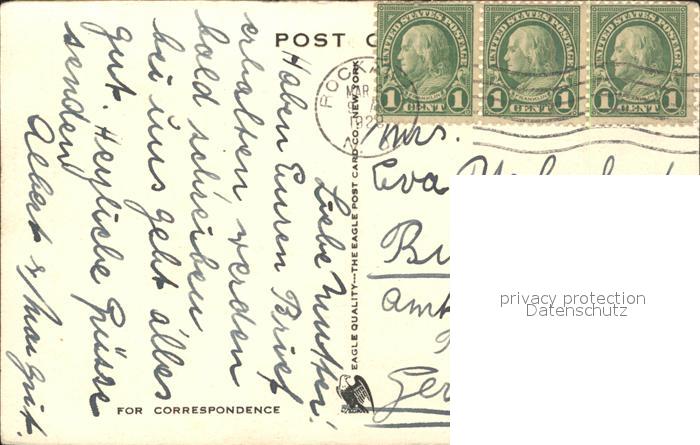 POST C
UNITED STATES POSTAGE
UNITED STATES POSTAGE
UNITED STATES POSTAGE
FRANKLIN
FRANKLIN
FRANKLIN
1 CENT 1
1 CENT 1
1 CENT 1
ROCKA
MAR
1929
Liebe Mutter!
Haben Euren Brief
erhalten werden
bald schreiben
bei uns geht alles
gut. Herzliche Grüsse
senden
Albert & Margrit.
EAGLE QUALITY—THE EAGLE POST CARD CO. NEW YORK
Mrs.
Eva
Bu
Amt
Ger
FOR CORRESPONDENCE
privacy protection
Datenschutz